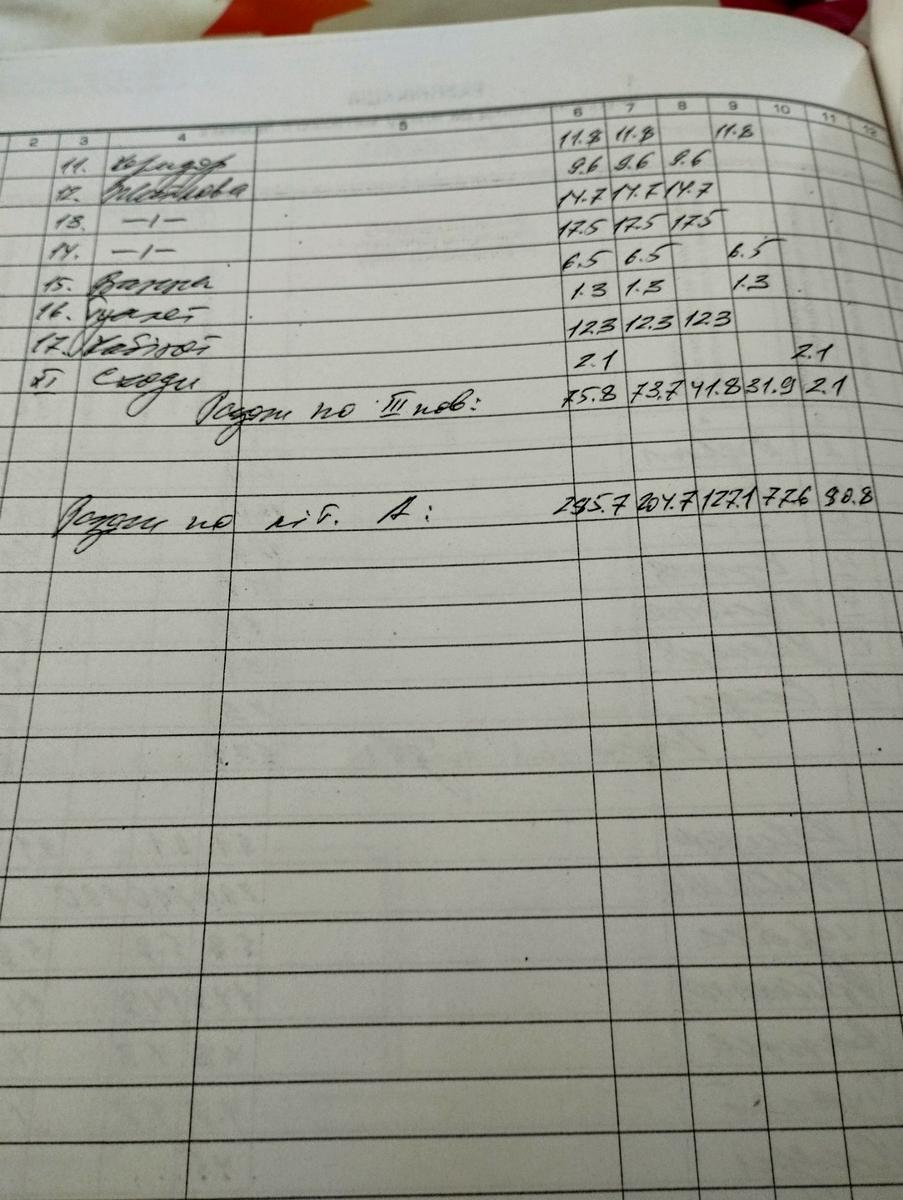 2 3 4 5 6 7 8 9 10 11 12
11. Коридор 11.8 11.8 11.8
12. Житлова 9.6 9.6 9.6
13. —1— 14.7 14.7 14.7
14. —1— 17.5 17.5 17.5
15. Ванна 6.5 6.5 6.5
16. Туалет 1.3 1.3 1.3
17. Кабінет 12.3 12.3 12.3
XI Сходи 2.1 2.1
Разом по III пов: 75.8 73.7 41.8 31.9 2.1
Разом по літ. А: 285.7 204.7 127.1 77.6 80.8